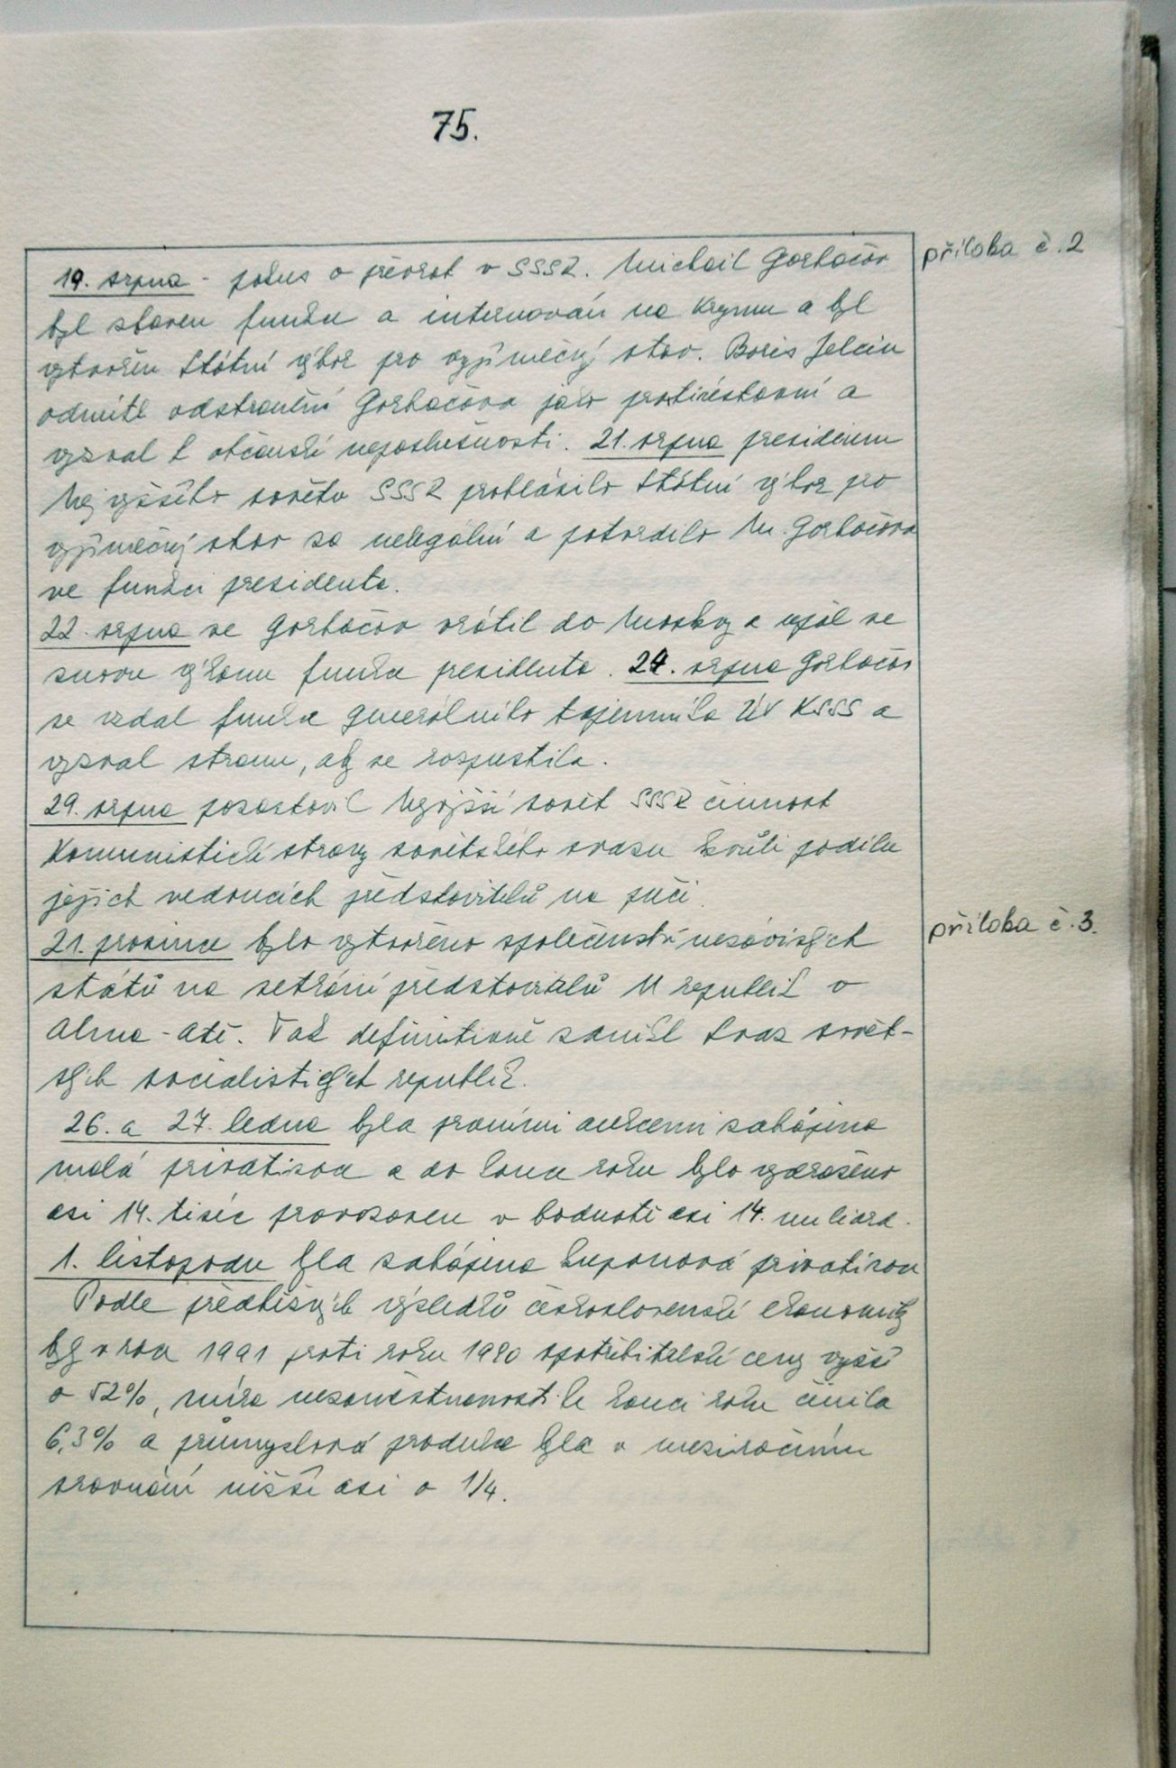 75.
19. srpna - pokus o převrat v SSSR. Michail Gorbačov
příloha č. 2
byl zbaven funkce a internován na Krymu a byl
vytvořen Státní výbor pro vyjímečný stav. Boris Jelcin
odmítl odstranění Gorbačova jako protiústavní a
vyzval k občanské neposlušnosti. 21. srpna presidium
Nejvyššího sovětu SSSR prohlásilo Státní výbor pro
vyjímečný stav za nelegální a potvrdilo M. Gorbačova
ve funkci presidenta.
22. srpna se Gorbačov vrátil do Moskvy a ujal se
znovu výkonu funkce presidenta. 24. srpna Gorbačov
se vzdal funkce generálního tajemníka ÚV KSSS a
vyzval stranu, aby se rozpustila.
29. srpna pozastavil Nejvyšší sovět SSSR činnost
Komunistické strany sovětského svazu kvůli podílu
jejich vedoucích představitelů na puči.
21. prosince bylo vytvořeno společenství nezávislých
příloha č. 3.
států na setkání představitelů 11 republik v
Alma-Atě. Tak definitivně zanikl Svaz sovět-
ských socialistických republik.
26. a 27. ledna byla prvními aukcemi zahájena
malá privatizace a do konce roku bylo vydraženo
asi 14. tisíc provozoven v hodnotě asi 14. miliard.
1. listopadu byla zahájena kuponová privatizace
Podle předběžných výsledků československé ekonomiky
byly v roce 1991 proti roku 1990 spotřebitelské ceny vyšší
o 52%, míra nezaměstnanosti ke konci roku činila
6,3% a průmyslová produkce byla v meziročním
srovnání nižší asi o 1/4.